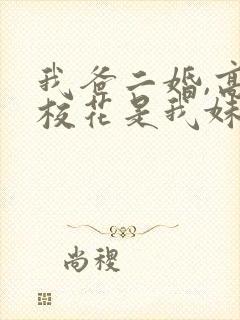 我爸二婚,高
校花是我妹
尚稷